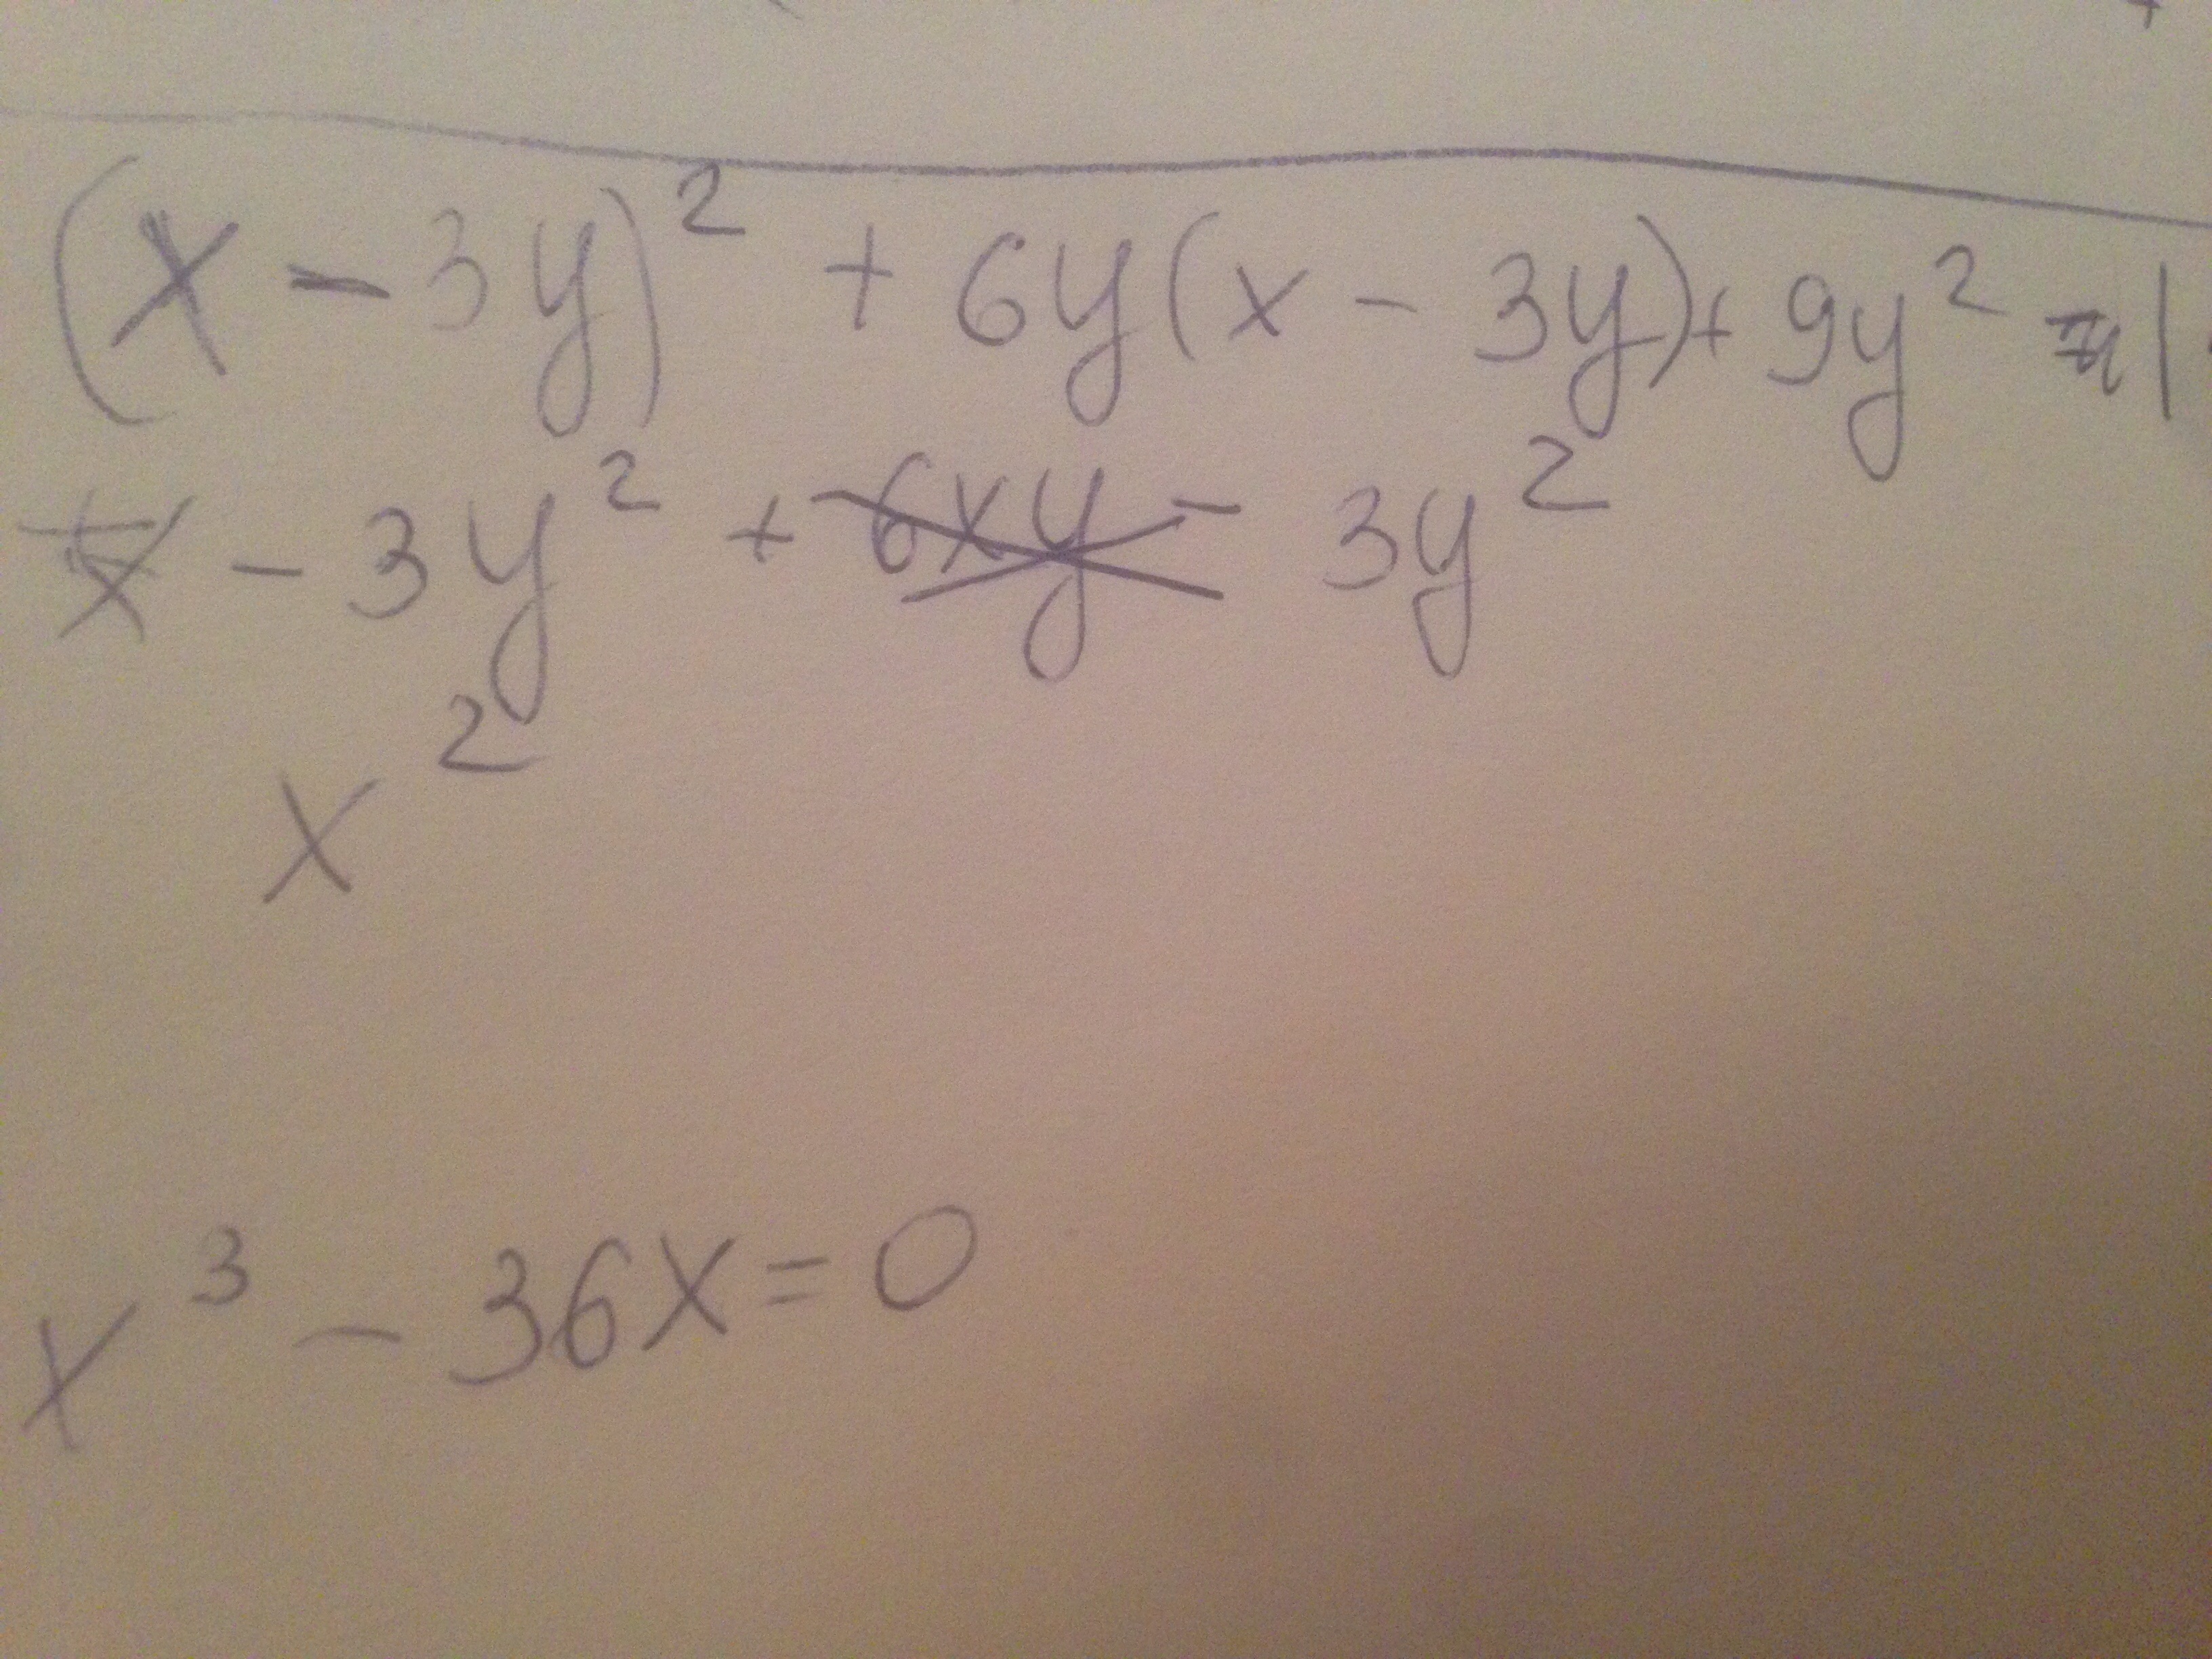 (x - 3y)² + 6y(x - 3y) + 9y² =
x - 3y² + 6xy - 3y²
x²
x³ - 36x = 0